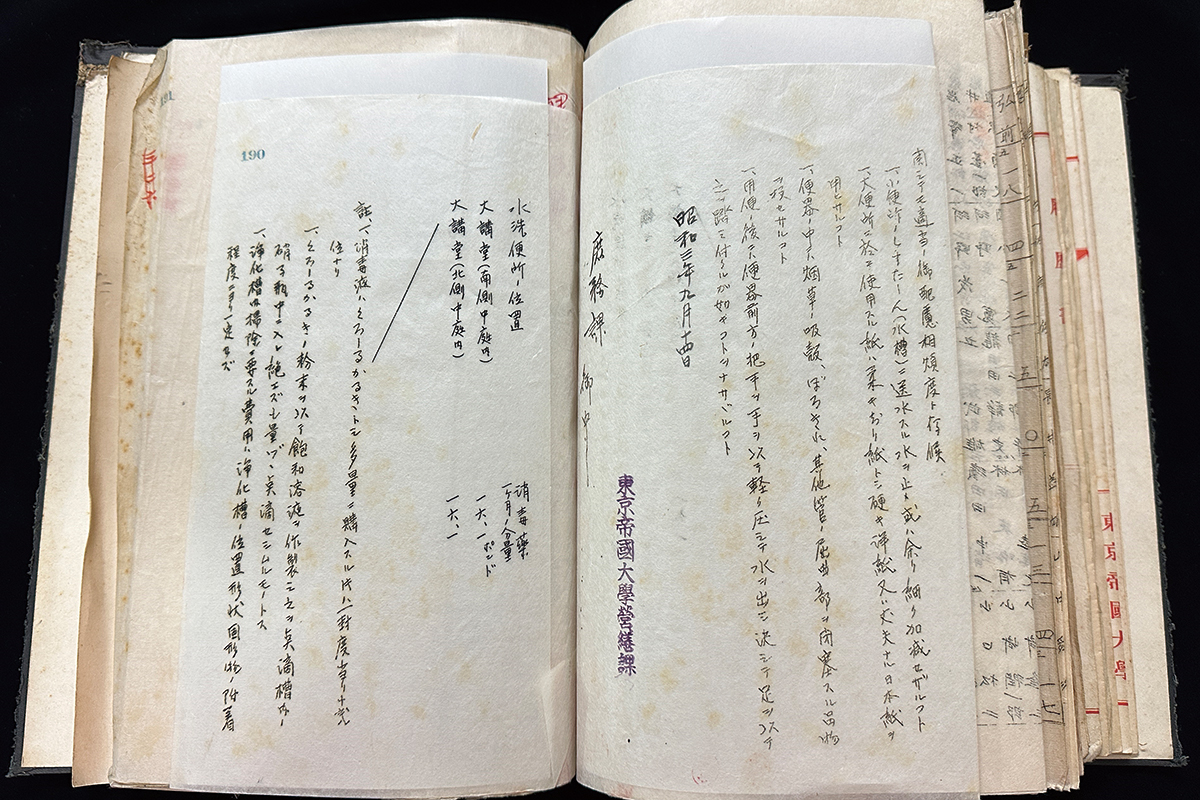 関シテモ適当御配慮相煩度ト存候
一、小便所ノしすたーん(水槽)ニ送水スル水ヲ止メ或ハ余リ細ク加減セザルコト
一、大便所ニ於テ使用スル紙ハ柔キおり紙トシ硬キ洋紙又ハ丈夫ナル日本紙ヲ
用ヒザルコト
一、便器ノ中ニ烟草ノ吸殻、ぼろきれ、其他管ノ屈曲部ヲ閉塞スル品物
ヲ投セザルコト
一、用便ノ後ニハ便器前方ノ把手ヲ手ヲ以テ軽ク圧シテ水ヲ出シ決シテ足ヲ以テ
之ヲ踏ミ付クルガ如キコトヲナサザルコト
昭和三年九月十四日
東京帝國大學營繕課
庶務課 御中
水洗便所ノ位置
消毒薬
一ヶ月ノ分量
大講堂(南側中庭内)
一六、一ポンド
大講堂(北側中庭内)
一六、一
註、一、消毒液ハくろーるかるきトシ多量ニ購入スル時ハ一封度当リ十六銭
位ナリ
一、くろーるかるきノ粉末ヲ以テ飽和溶液ヲ作製シ之ヲ点滴槽内ノ
硝子瓶中ニ入レ絶エズ少量ヅヽ点滴セシムルモノトス
一、浄化槽内掃除ニ要スル費用ハ浄化槽ノ位置形状固形物ノ附着
程度ニヨリ一定セズ
190
191
東京帝國大學
弘前